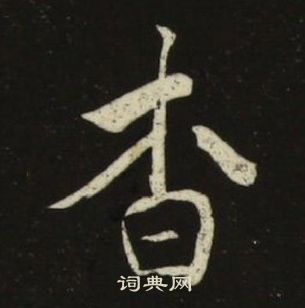 杳
词典网